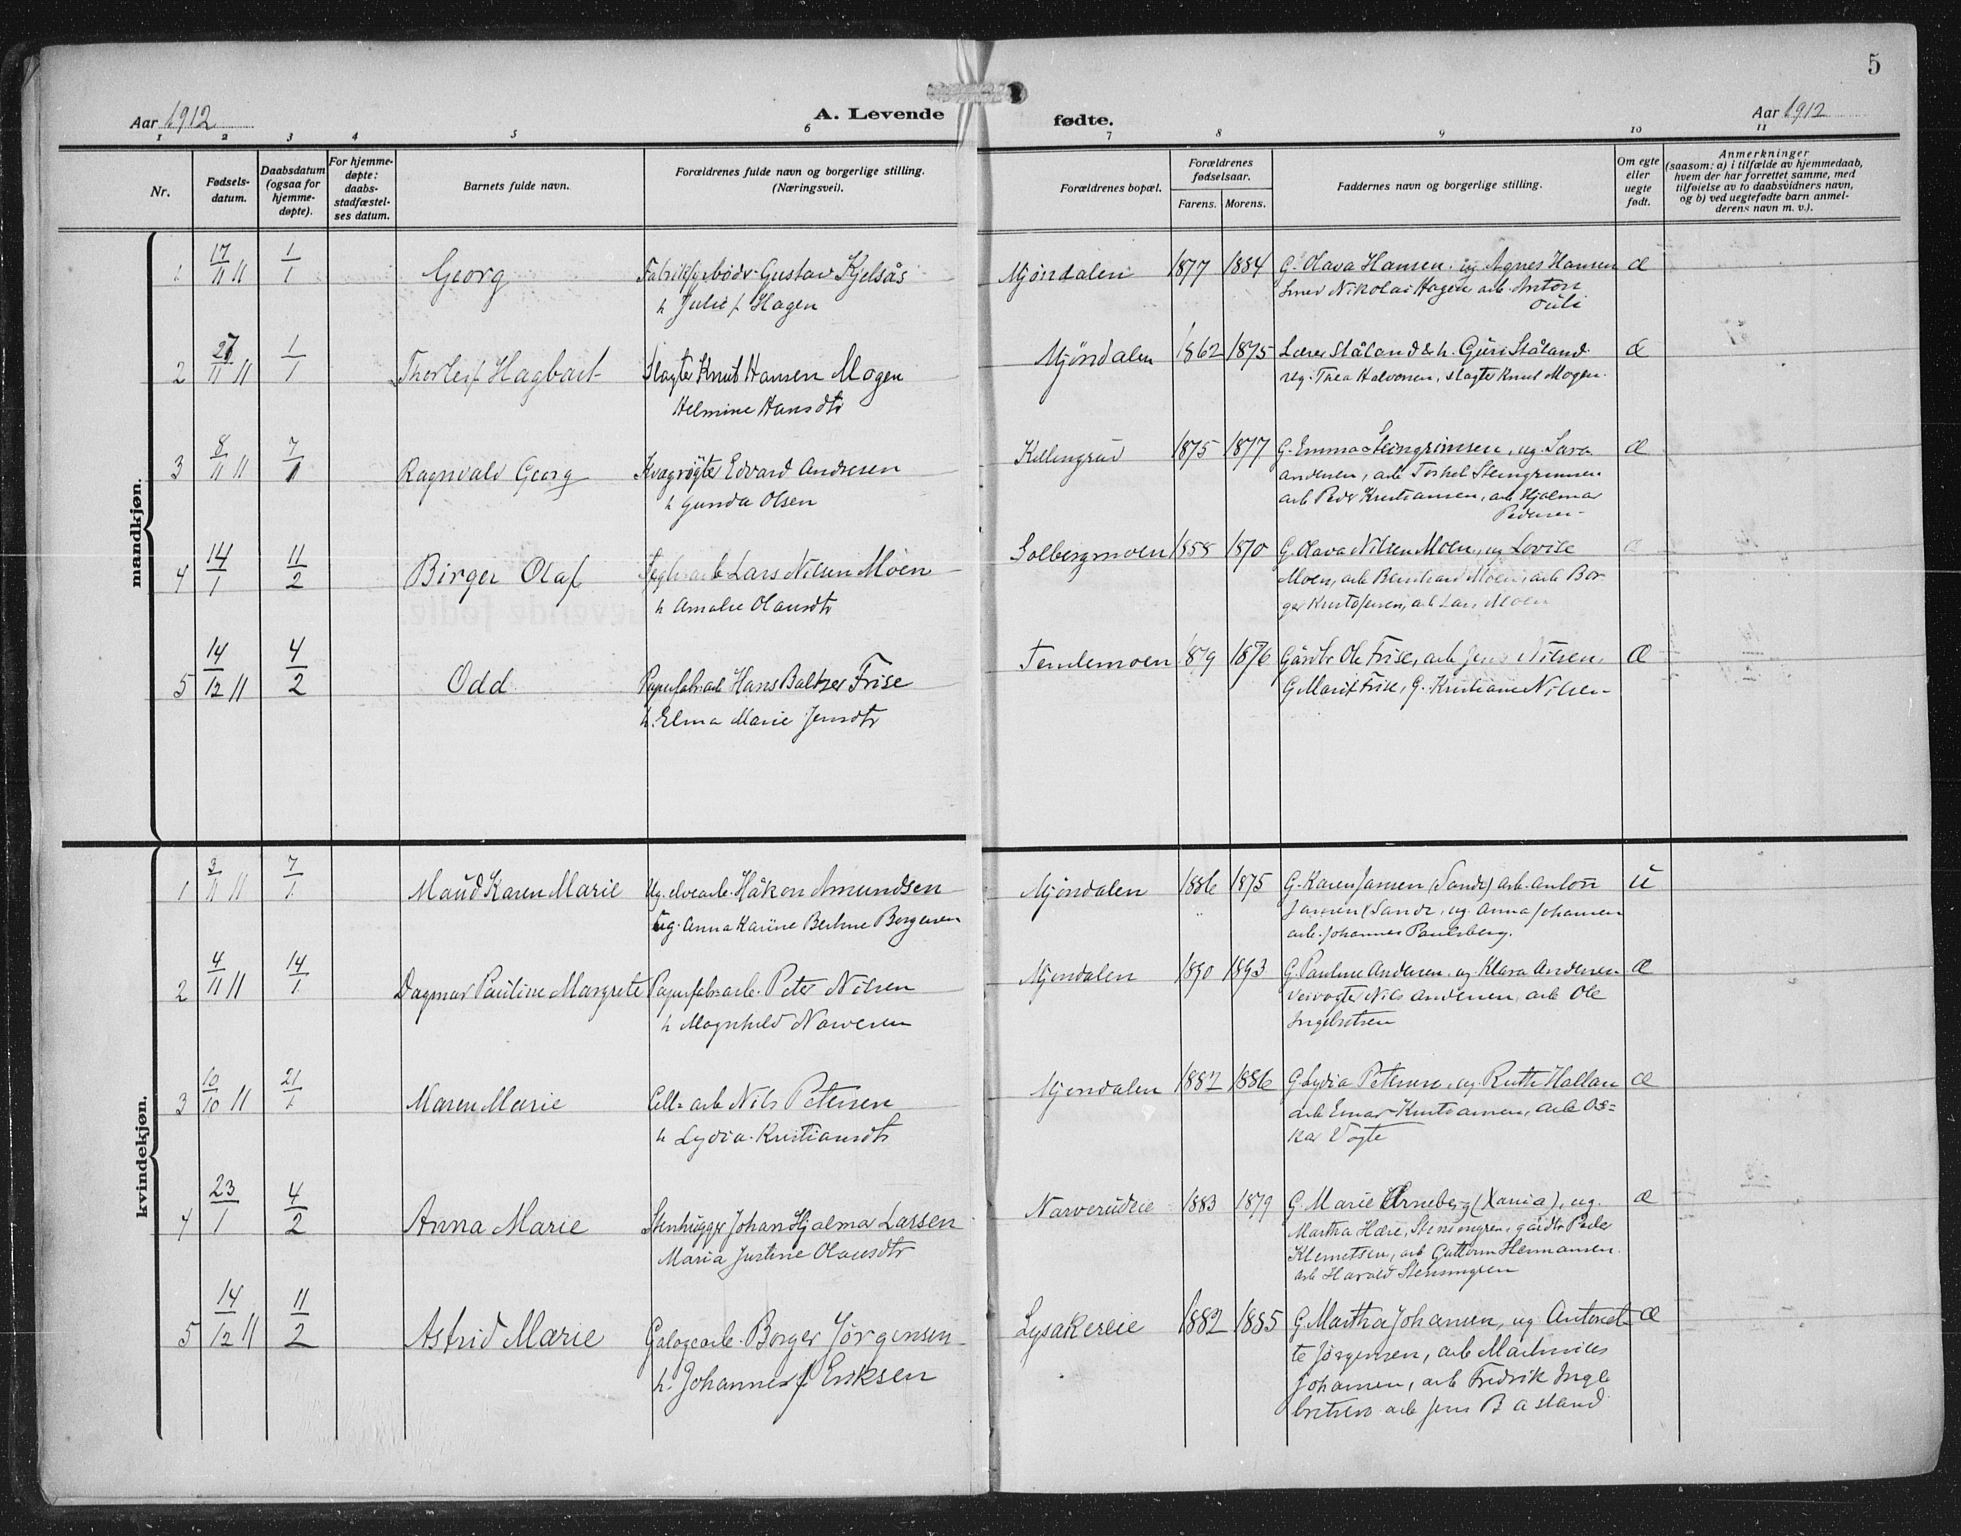 5
Aar 1912
A. Levende
fødte.
Aar 1912
1 2 3 4 5 6 7 8 9 10 11
Nr.
Fødsels-
datum.
Daabsdatum
(ogsaa for
hjemme-
døpte).
For hjemme-
døpte:
daabs-
stadfæstel-
ses datum.
Barnets fulde navn.
Forældrenes fulde navn og borgerlige stilling.
(Næringsvei).
Forældrenes bopæl.
Forældrenes
fødselsaar.
Farens. Morens.
Faddernes navn og borgerlige stilling.
Om egte
eller
uegte
født.
Anmerkninger
(saasom: a) i tilfælde av hjemmedaab,
hvem der har forrettet samme, med
tilføielse av to daabsvidners navn,
og b) ved uegtefødte barn anmel-
derens navn m. v.).
mandkjøn.
1 17/11 11 1/1 Georg Gustav Kjelsås Mjøndalen 1877 1884 G. Olava Hansen, ug. Agnes Hansen æ
h Julie f. Hagen Nikolai Hagen arb. Anton
Juli
2 27/11 11 1/1 Thorleif Hagbart Slagter Knut Hansen Mogen Mjøndalen 1862 1875 Lærer Ståland & h. Guri Ståland æ
Helmine Hansdtr ug. Thea Halvorsen, slagter Knut Mogen.
3 8/11 11 7/1 Ragnvald Georg Kvægrøgter Edvard Andresen Killingrud 1875 1877 G. Emma Steingrimsen, ug. Sava æ
h Gunda Olsen Andersen, arb Torkel Steingrimsen
arb Peder Kristiansen, arb Hjalmar
Pedersen
4 14/1 11/2 Birger Olaf Teglv.arb Lars Nilsen Moen Solbergmoen 1858 1870 G. Olava Nilsen Moen, ug Lovise
h Amalie Olausdtr Moen, arb Bernhard Moen, arb Bor-
ger Kristofersen, arb Lars Moen
5 14/12 11 4/2 Odd Papirfabr.arb Hans Baltzer Frise Tendemoen 1879 1876 Gårdbr Ole Frise, arb Jens Nilsen, æ
h. Elma Marie Jensdtr G Marit Frise, G. Kristiane Nilsen
kvindekjøn.
1 3/11 11 7/1 Maud Karen Marie Ug. elvearb. Håkon Amundsen Mjøndalen 1886 1875 G. Karen Jansen (Sande) arb. Anton u
ug. Anna Karine Bertine Borgersen Jansen Sande, ug. Anna Johansen
arb. Johannes Paulsberg.
2 4/11 11 14/1 Dagmar Pauline Margrete Papirfabrarb. Peter Nilsen Mjøndalen 1890 1893 G. Pauline Andersen, ug Klara Andersen æ
h Magnhild Narvesen Veivogter Nils Andersen, arb Ole
Ingebretsen
3 10/10 11 21/1 Maren Marie Cell. arb Nils Petersen Mjøndalen 1882 1886 G Lydia Petersen, ug Ruth Hallan æ
h Lydia Kristiansdtr arb Einar Kristiansen, arb Os-
kar Vogte
4 23/1 4/2 Anna Marie Stenhugger Johan Hjalmar Larsen Narverudeie 1883 1879 G. Marie Arneberg (Xania), ug. æ
Maria Justine Olausdtr Martha Hære, Stensengren, gårdbr Peder
Klemetsen, arb Guttorm Hermansen.
arb Harald Stensengren
5 14/12 11 11/2 Astrid Marie Galogearb. Borger Jørgensen Lysakereie 1882 1885 G. Martha Johansen, ug Antonet- æ
h. Johanne f Eriksen te Jørgensen, arb Martinius
Johansen, arb Fredrik Inge
bretsen arb Jens Båstand